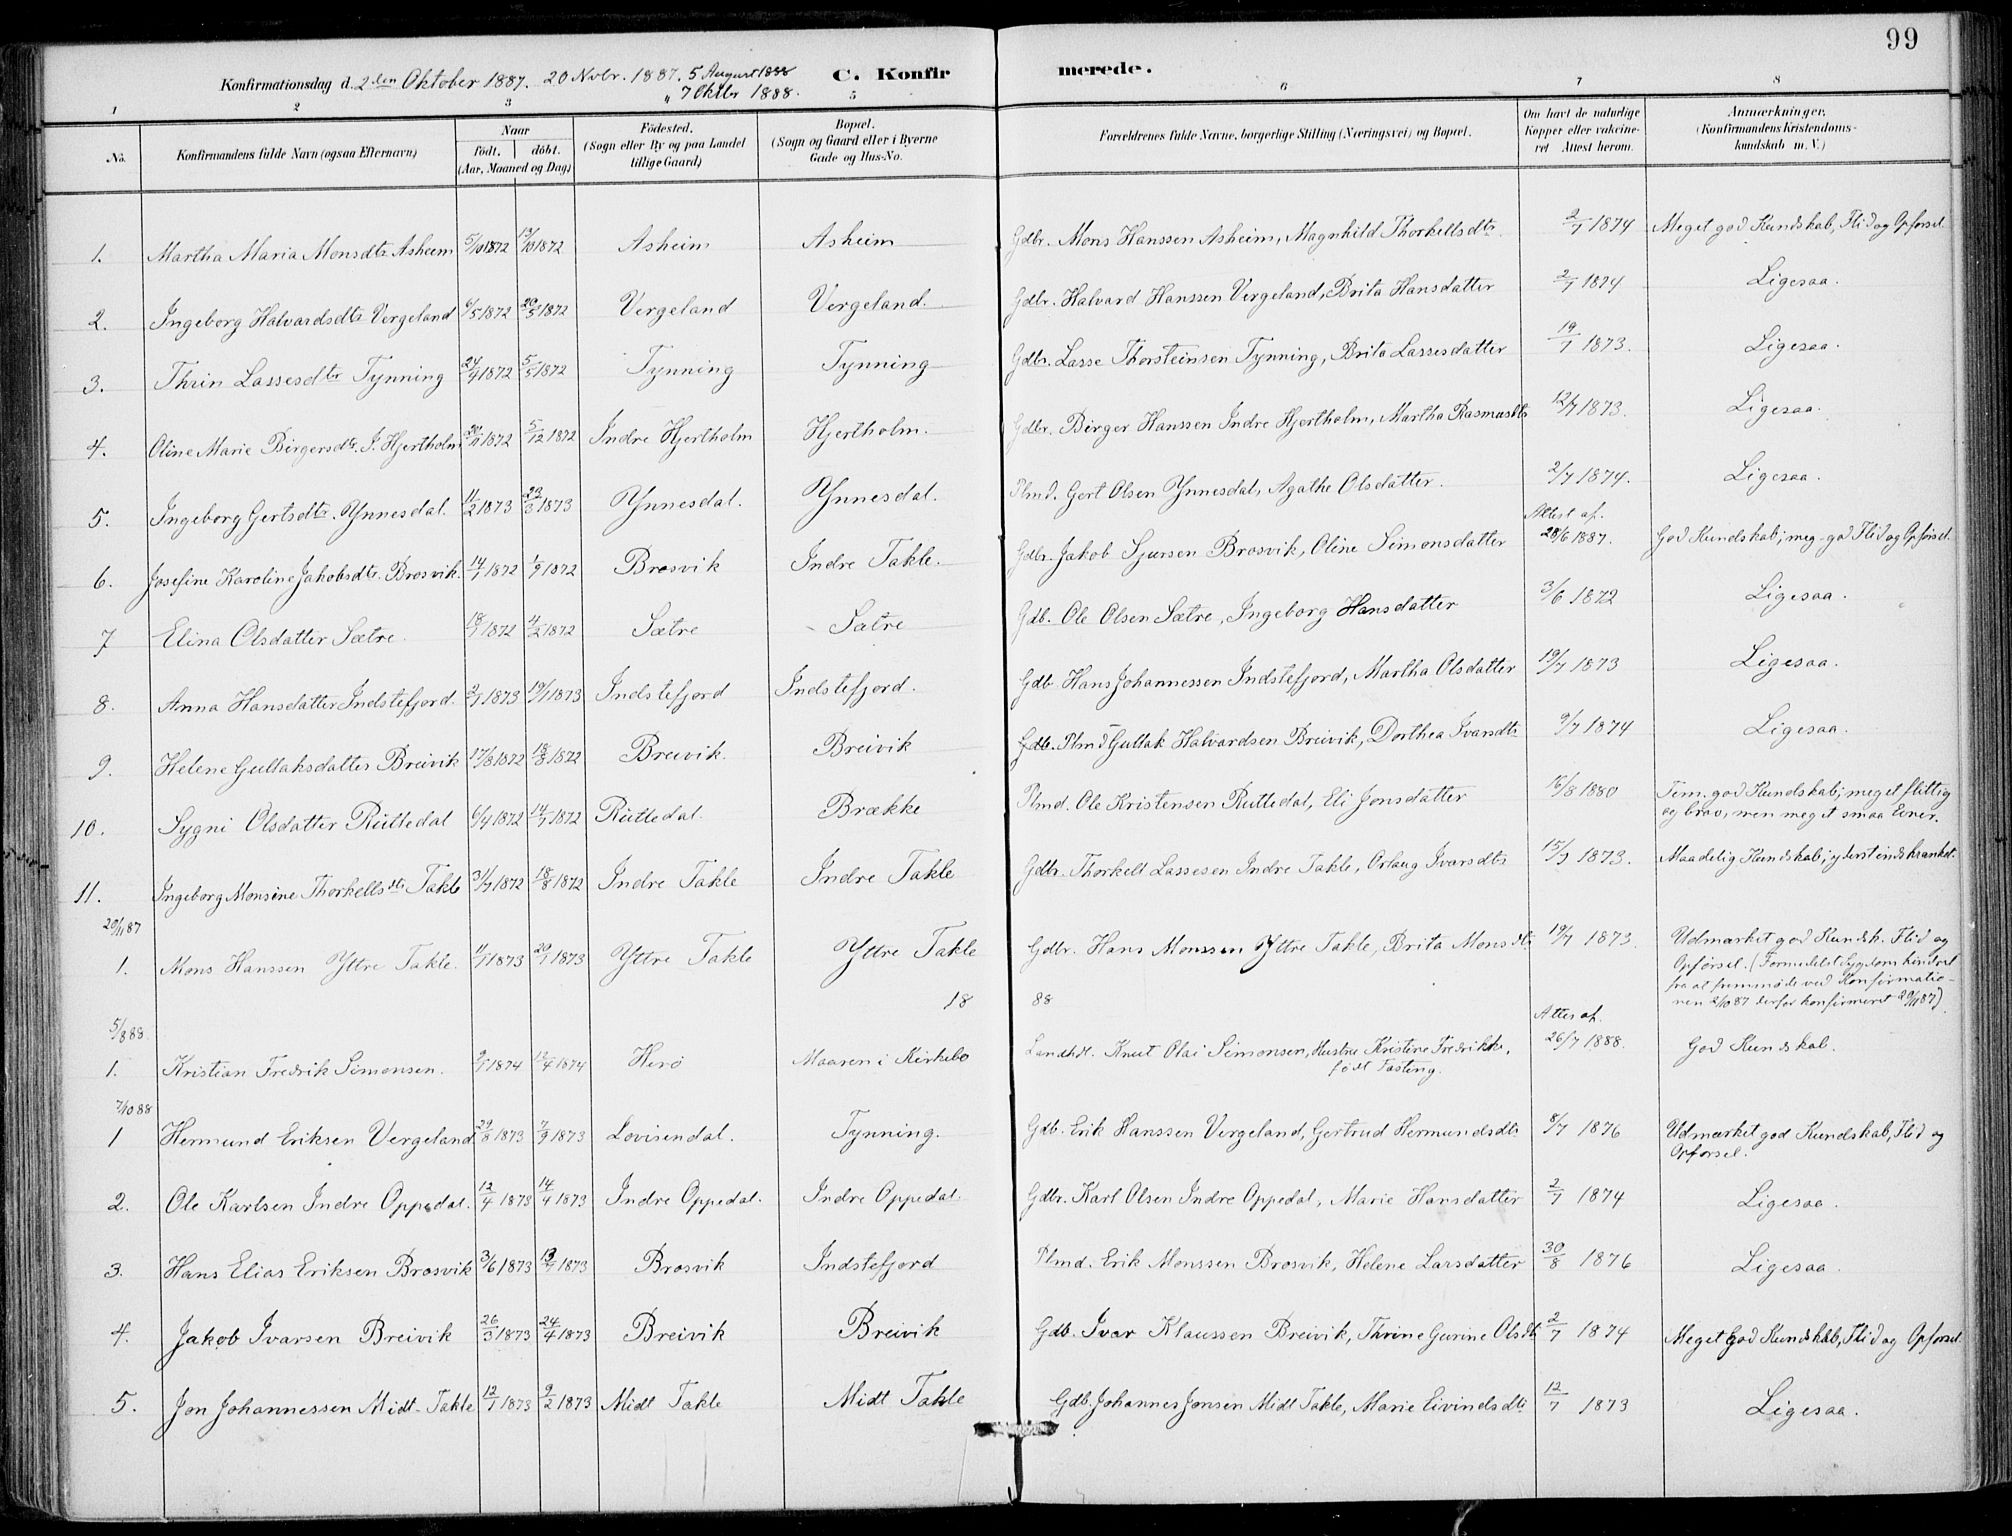 99
Konfirmationsdag d. 2den Oktober 1887. 20 Novbr. 1887. 5 August 1888
" 7 Oktbr 1888.
C. Konfirmerede.
1 2 3 5 6 7 8
No. Konfirmandens fulde Navn (ogsaa Efternavn) Naar født, døbt. (Aar, Maaned og Dag) Födested. (Sogn eller By og paa Landet tillige Gaard) Bopæl. (Sogn og Gaard eller i Byerne Gade og Hus-No. Forældrenes fulde Navne, borgerlige Stilling (Næringsvei) og Bopæl. Om havt de naturlige Kopper eller vakcineret Attest herom. Anmærkninger. (Konfirmandens Kristendomskundskab m. V.)
1. Martha Maria Monsdtr Asheim 5/10 1872 13/10 1872 Asheim Asheim Gdbr. Mons Hanssen Asheim, Magnhild Thorkellsdtr. 2/7 1874 Meget god Kundskab, Flid og Opførsel
2. Ingeborg Halvardsdtr Vergeland 6/5 1872 20/5 1872 Vergeland Vergeland. Gdbr. Halvard Hanssen Vergeland, Brita Hansdatter 2/7 1874 Ligesaa.
3. Thrin Lassesdtr Tynning 24/4 1872 5/5 1872 Tynning Tynning Gdbr. Lasse Thorsteinsen Tynning, Brita Lassesdatter 19/7 1873. Ligesaa.
4. Oline Marie Birgersdtr. I. Hjertholm 20/11 1872 5/12 1872 Indre Hjertholm Hjertholm. Gdbr. Birger Hanssen Indre Hjertholm, Martha Rasmusdtr 12/7 1873. Ligesaa.
5. Ingeborg Gertsdtr. Ynnesdal. 11/2 1873 23/3 1873 Ynnesdal. Ynnesdal. Plmd. Gert Olsen Ynnesdal, Agathe Olsdatter. 2/7 1874. Ligesaa.
6. Josefine Karoline Jakobsdtr. Brosvik. 14/7 1872 1/9 1872 Brosvik Indre Takle. Gdbr. Jakob Sjursen Brosvik, Oline Simonsdatter Attest af. 28/6 1887. God Kundskab; meg. god Flid og Opførsel.
7 Elina Olsdatter Sætre. 18/1 1872 4/2 1872 Sætre Sætre Gdb. Ole Olsen Sætre, Ingeborg Hansdatter 3/6 1872 Ligesaa.
8. Anna Hansdatter Indstefjord. 2/1 1873 19/1 1873 Indstefjord Indstefjord. Gdb. Hans Johannessen Indstefjord, Martha Olsdatter 19/7 1873 Ligesaa.
9. Helene Gullaksdatter Breivik 17/8 1872 18/8 1872 Breivik. Breivik Gdb. Plmd Gullak Halvardsen Breivik, Dorthea Ivarsdtr 9/7 1874 Ligesaa.
10. Sygni Olsdatter Rütledal 6/4 1872 14/7 1872 Rütledal. Brække Plmd. Ole Kristensen Rutledal, Eli Jonsdatter 16/8 1880 Tem. god Kundskab; meget flittig
og brav, men meget smaa Evner.
11. Ingeborg Monsine Thorkellsdtr Takle 31/7 1872 18/8 1872 Indre Takle Indre Takle Gdbr. Thorkell Lassesen Indre Takle, Orlaug Ivarsdtr 15/7 1873. Maadelig Kundskab; yderst indskrænket.
20/11 87
1. Mons Hanssen Yttre Takle. 1873 1873 Yttre Takle Yttre Takle Gdbr. Hans Monssen Yttre Takle, Brita Monsdtr 19/7 1873. Udmærket god Kundsk. Flid og
Opførsel. (Formedelst Sygdom hindret
fra at fremmøde ved Konfirmatio-
nen 2/10 87 derfor konfirmeret 20/11 87)
18 88
5/8 88.
1. Kristian Fredrik Simonsen. 1874 12/4 1874 Herö Maaren i Kirkebø Landhdl. Knut Olai Simonsen, Hustru Kristine Fredrikke, Attest af. 26/7 1888. God Kundskab.
født Tasting.
7/10 88
1 Hermund Eriksen Vergeland 29/8 1873 7/9 1873 Lovisendal. Tynning. Gdb. Erik Hanssen Vergeland, Gertrud Hermundsdtr 8/7 1876 Udmærket god Kundskab, Flid og
Opførsel.
2. Ole Karlsen Indre Oppedal. 12/4 1873 14/4 1873 Indre Oppedal. Indre Oppedal. Gdbr. Karl Olsen Indre Oppedal, Marie Hansdatter 2/7 1874 Ligesaa.
3. Hans Elias Eriksen Brosvik 3/6 1873 13/7 1873 Brosvik Indstefjord Plmd. Erik Monssen Brosvik, Helene Larsdatter 30/8 1876 Ligesaa.
4. Jakob Ivarsen Breivik 26/3 1873 24/4 1873 Breivik Breivik Gdb. Ivar Klaussen Breivik, Thrine Gurine Olsdtr 2/7 1874 Meget God Kundskab, Flid og Opførsel
5. Jon Johannessen Midt-Takle 12/1 1873 9/2 1873 Midt Takle Midt Takle Gdb. Johannes Jonsen Midt Takle, Marie Eivindsdtr 12/7 1873 Ligesaa.